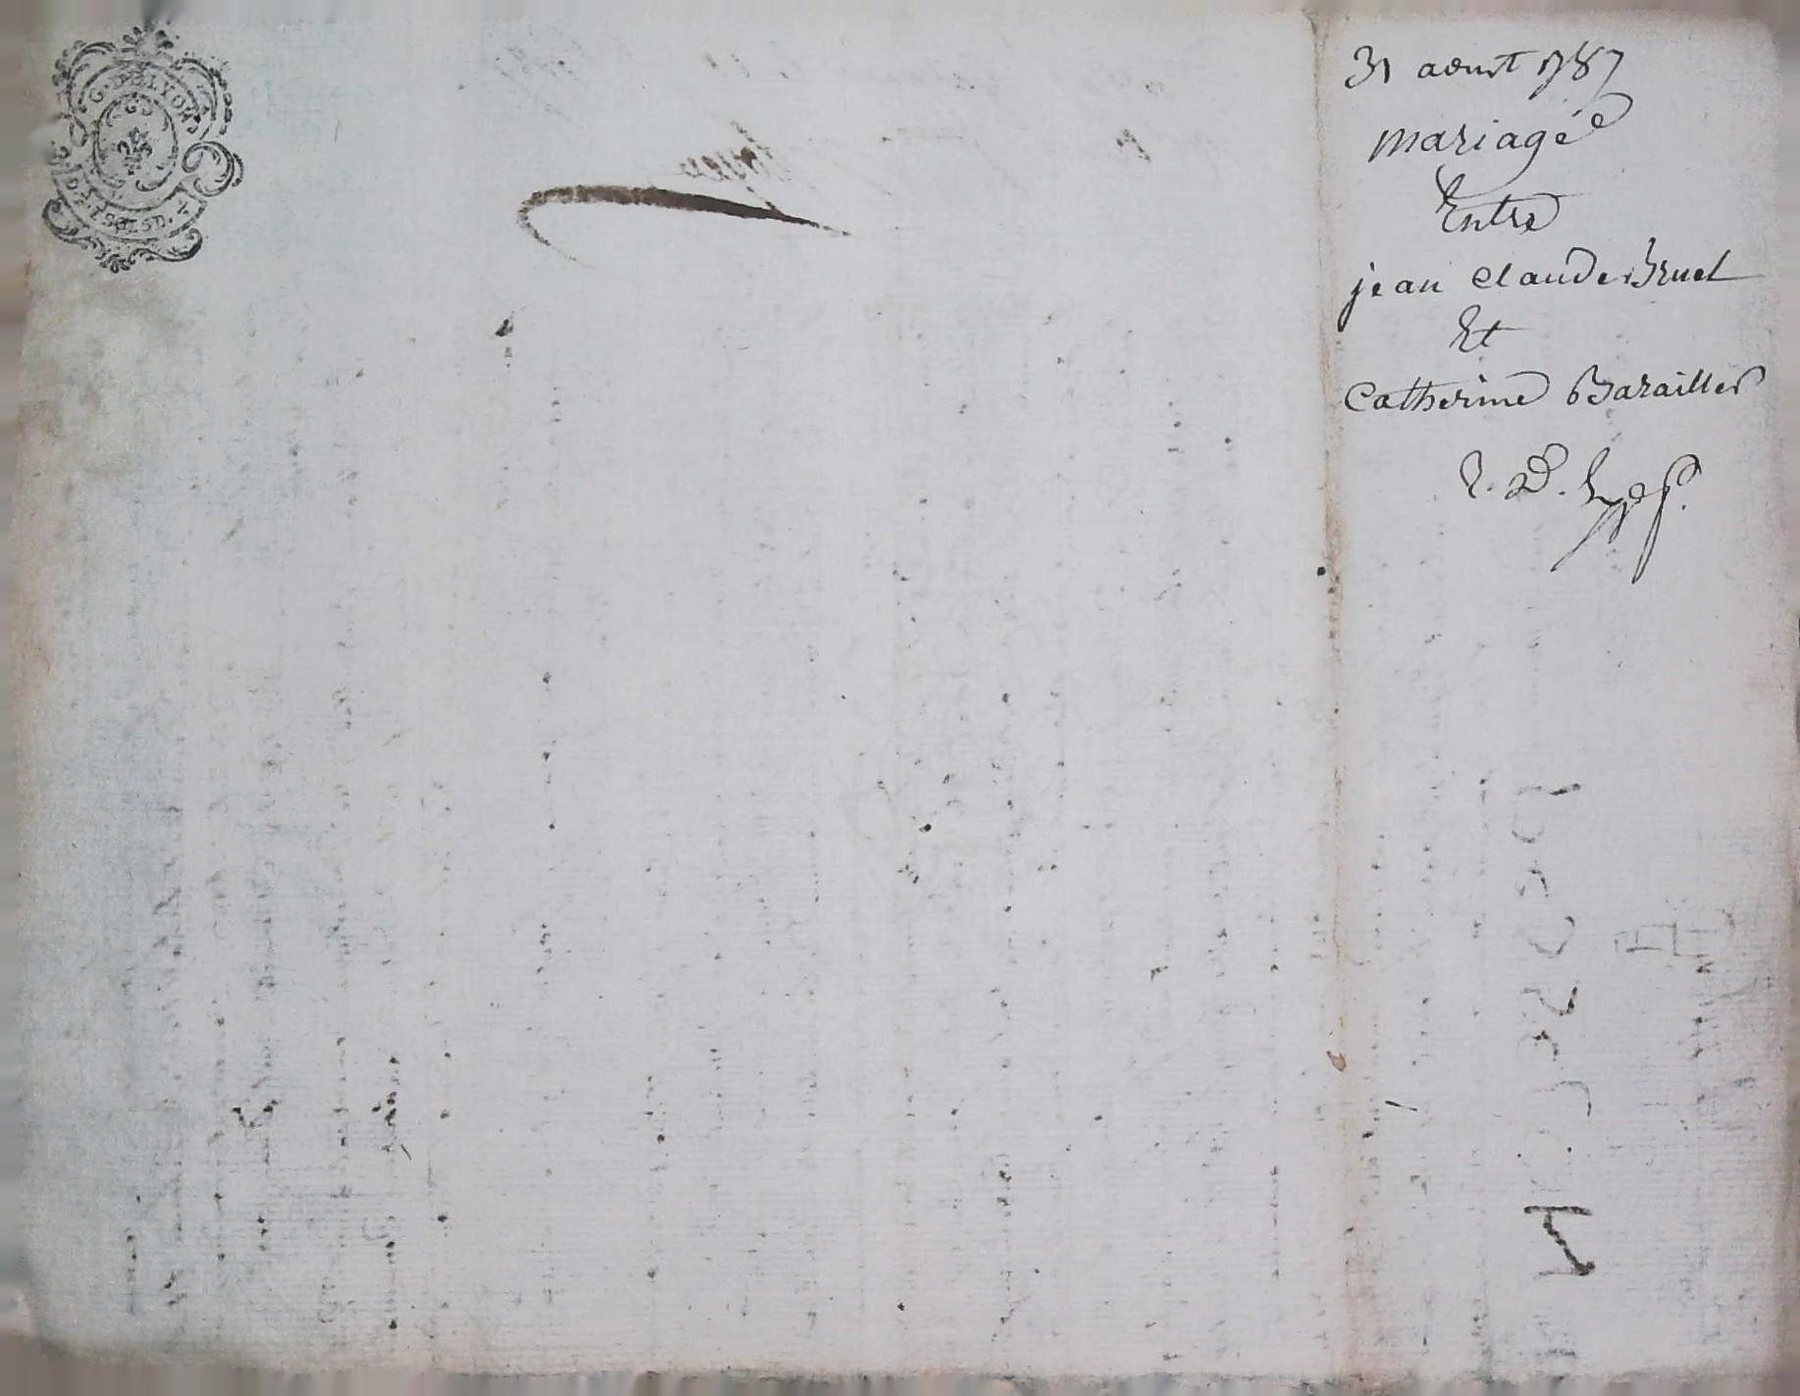 G. DE LYON
31 aoust 1787
mariage
Entre
jean claude Bruel
Et
Catherine Barailler